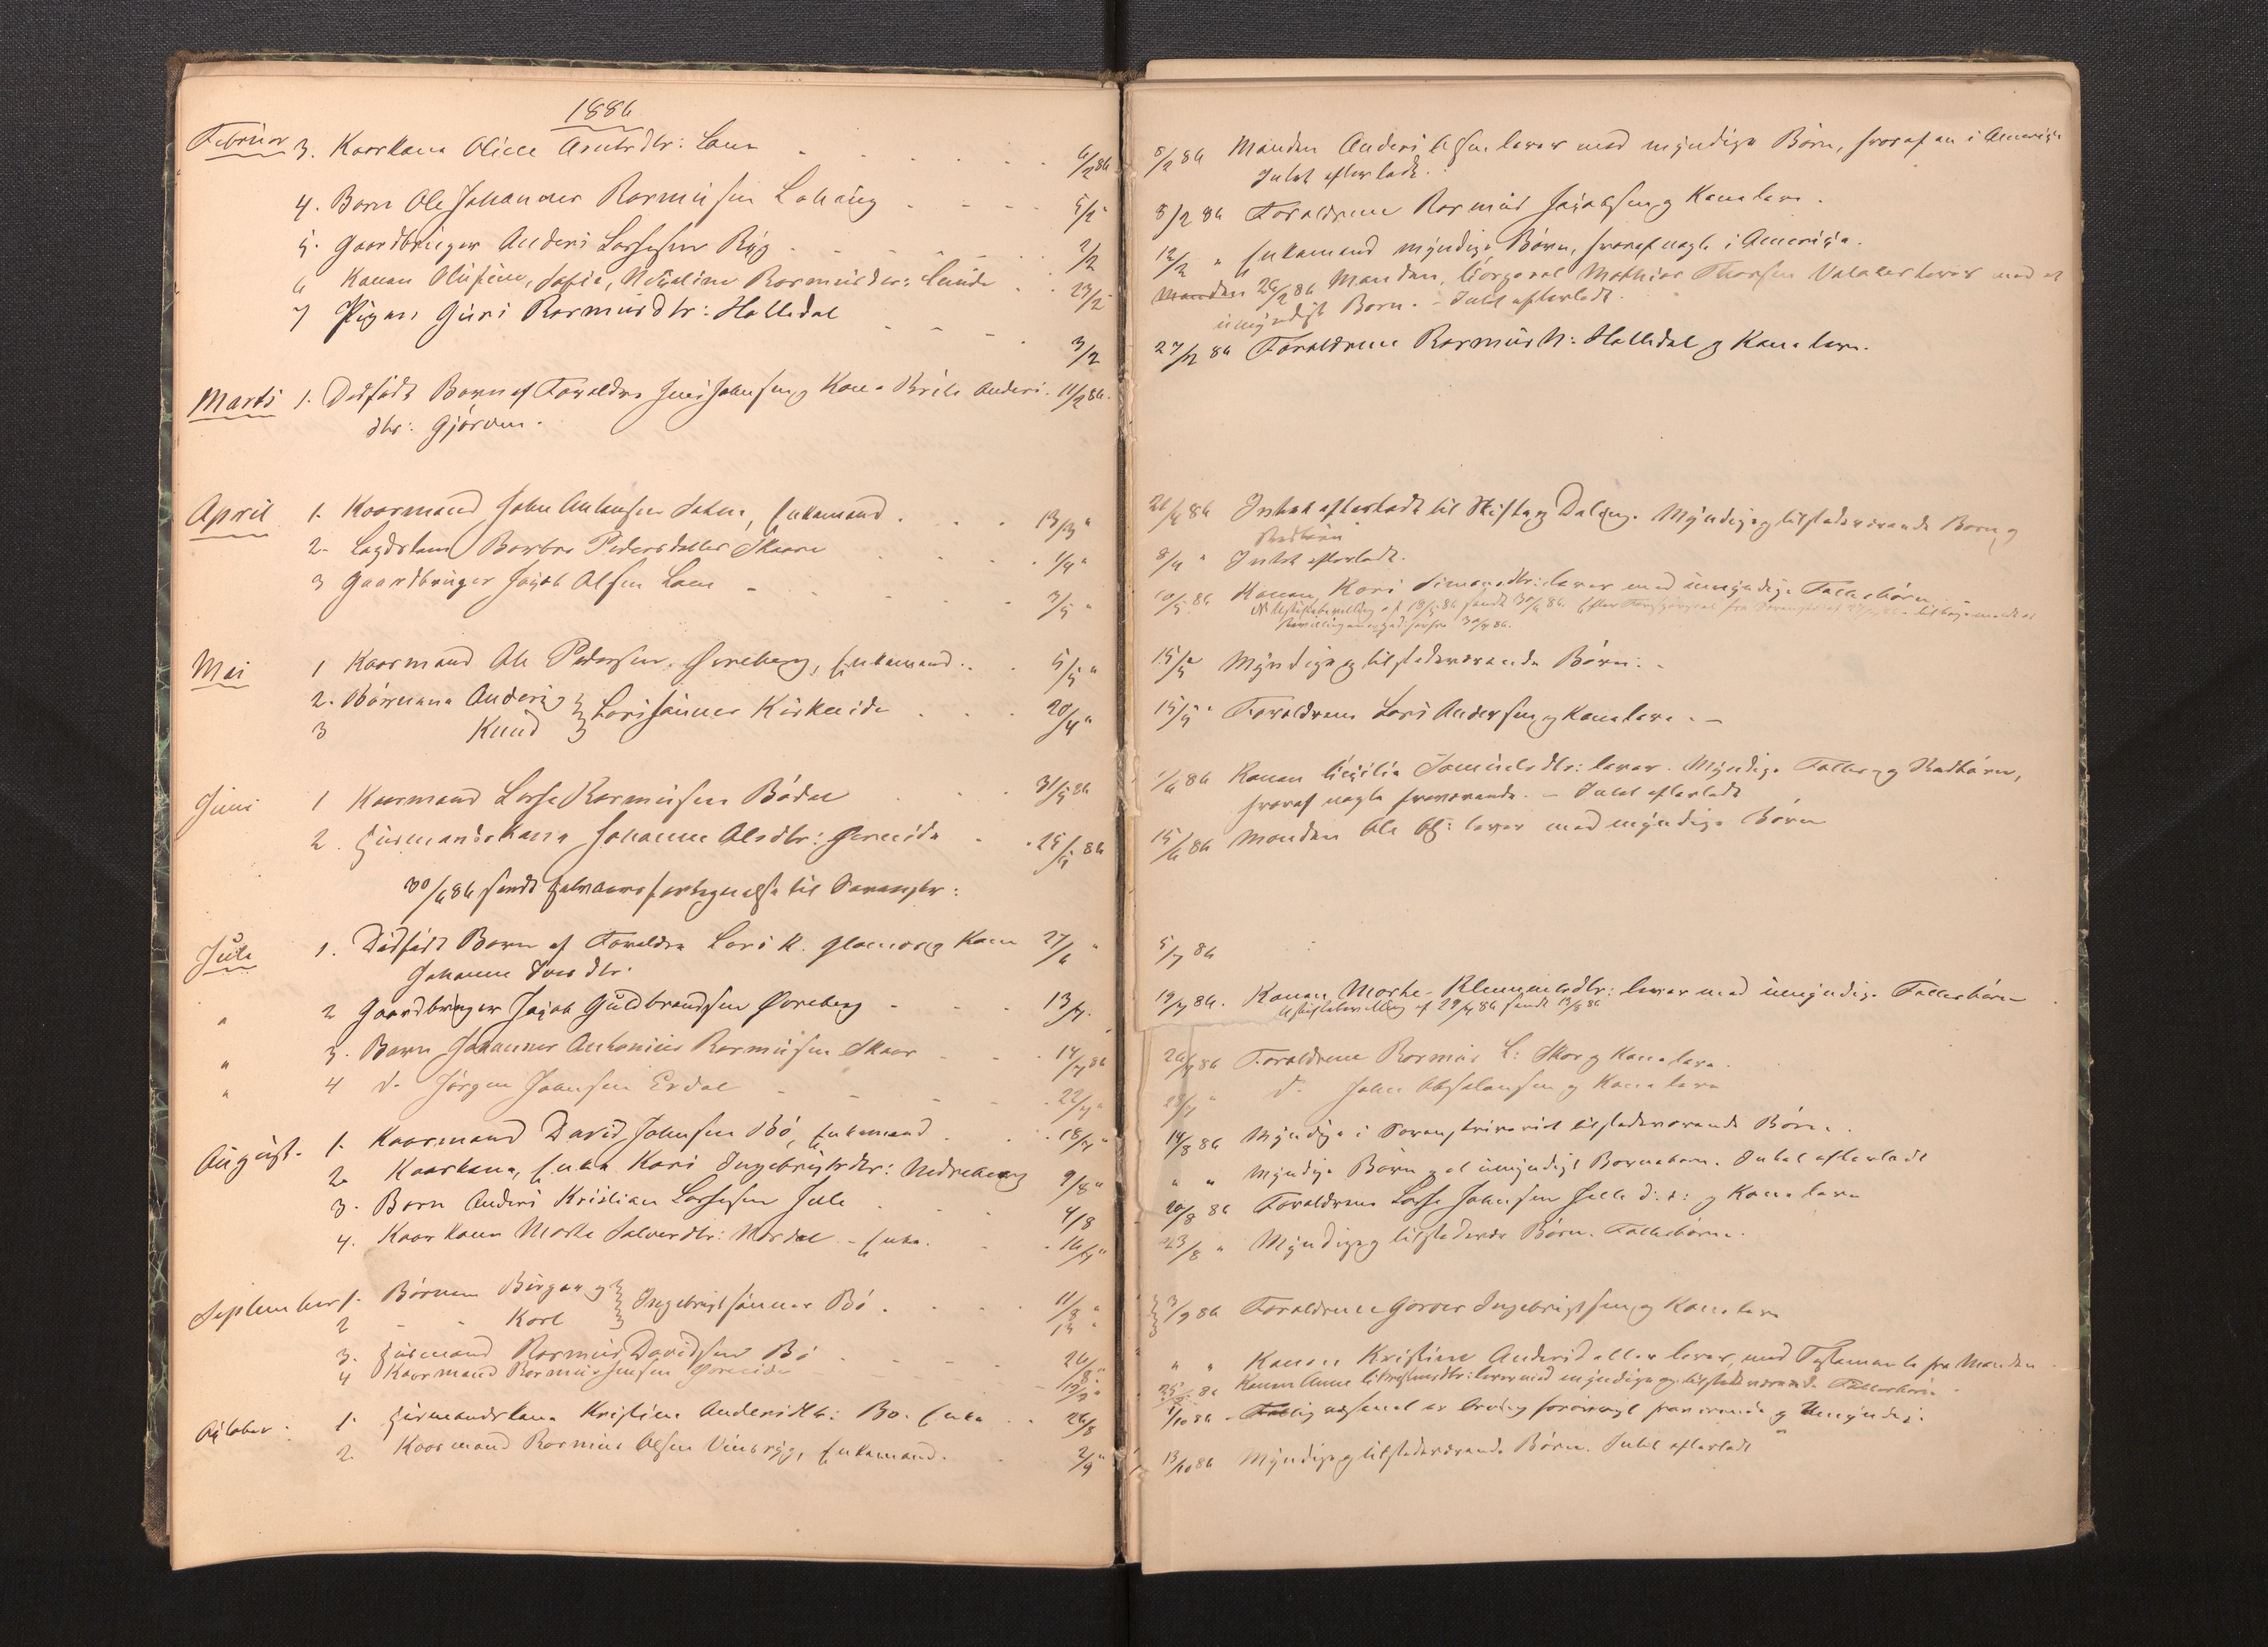 1886
Februar 3. Kaarkone Oline Arntsdtr: Lunn 6/2 86
4. Barn Ole Johannes Rasmusen Lohaug 5/2 "
5. Gaardbruger Anders Lassesen Ryg 2/2
6 Konen Olufine, Sofie, Rasmusdtr: Lunde 23/2
7 Pigen Guri Rasmusdtr: Hattedal
3/2
Marts 1. Dødfødt Barn af Forældre Jens Johnsen og Kone Brite Anders- 11/2 86.
dtr: Gjørven.
April 1. Kaarmand John Antonsen, Enkemand 13/3 "
2. Lægdslem Barbro Pedersdatter Skaare 1/4 "
3 Gaardbruger Jakob Olsen Lunn 3/5 "
Mai 1 Kaarmand Ole Pedersen Øvreberg, Enkemand 5/5 "
2. Børnene Anders og } Larssønner Kirkeide 20/4 "
3 Knud
Juni 1 Kaarmand Lasse Rasmusen Bødal 31/5 86
2. Huusmandskone Johanne Olsdtr: Øvreeide 25/5 86
30/6 86 sendt Halvaarsfortegnelse til Sorenskr:
Juli 1. Dødfødt Barn af Forældre Lars R. og Kone 27/6 "
Johanne Iversdtr.
" 2 Gaardbruger Jakob Guldbrandsen Øvreberg 13/7.
" 3. Barn Johannes Antonius Rasmusen Skaar 14/7 86
" 4 d. Jørgen Johnsen Erdal 22/7 "
August. 1. Kaarmand David Johnsen Bø, Enkemand 18/7 "
2. Kaarkone, Enke Kari Ingebrigtsdtr: Nedreberg 9/8 "
3. Barn Anders Kristian Lassesen Helle 4/8
4. Kaarkone Marte Salvesdtr: Mardal - Enke. 16/7 "
September 1. Børnene Birger og } Ingebrigtsønner Bø 11/8 "
2 - - Karl 14 "
3. Huusmand Rasmus Davidsen Bø 26/8 "
4 Kaarmand Rasmus Jensen Øvreeide 12/9 "
Oktober. 1. Huusmandskone Kristine Andersdtr: Bø. Enke 26/8
2. Kaarmand Rasmus Olsen Vinsryg, Enkemand. 2/9 "
8/2 86 Manden Anders Olsen lever med myndige Børn, hvoraf en i Amerika
Intet efterladt.
8/2 86 Forældrene Rasmus Jakobsen og Kone leve.
12/2 " Enkemand myndige Børn, hvoraf nogle i Amerika.
Manden 26/2 86 Manden, Korporal Mathias Thorsen lever med et
umyndigt Barn. - Intet efterladt.
27/2 86 Forældrene Rasmus N: Hattedal og Kone leve.
21/4 86 Intet efterladt til Skifte og Deling. Myndige og tilstedeværende Børn og
Stedbørn
8/4 " Intet efterladt.
10/5 86 Konen, Kari Simonsdtr: lever med umyndige Fællesbørn
15/5 Myndige og tilstedeværende Børn. -
15/5 " Forældrene Lars Andersen og Kone leve. -
1/6 86 Konen Cicilie Samuelsdtr: lever. Myndige Fælles- og Stedbørn,
hvoraf nogle fraværende. - Intet efterladt
15/6 86 Manden Ole Ols: lever med myndige Børn
5/7 86
19/7 86. Konen Marte Klemmetsdtr: lever med umyndige Fællesbørn
Uskiftebevilling af 29/7 86 sendt 13/8 86
26/7 86 Forældrene Rasmus L: Skor og Kone leve.
28/7 " d. John Absalonsen og Kone leve
14/8 86 Myndige i Sorenskriveriet tilstedeværende Børn.
" " Myndige Børn og et umyndigt Barnebarn. Intet efterladt
20/8 86 Forældrene Lasse Johnsen Helle d: æ: og Kone leve
23/8 " Myndige og tilstedevær Børn. Fællesbørn.
3/9 86 Forældrene Ingebrigtsen og Kone leve
" " Konen Kristine Andersdatter lever, med Testamente fra Manden
25/9 86 Konen Anne lever med myndige og tilstedeværende Fællesbørn.
1/10 86
13/10 86 Myndige og tilstedeværende Børn. Intet efterladt